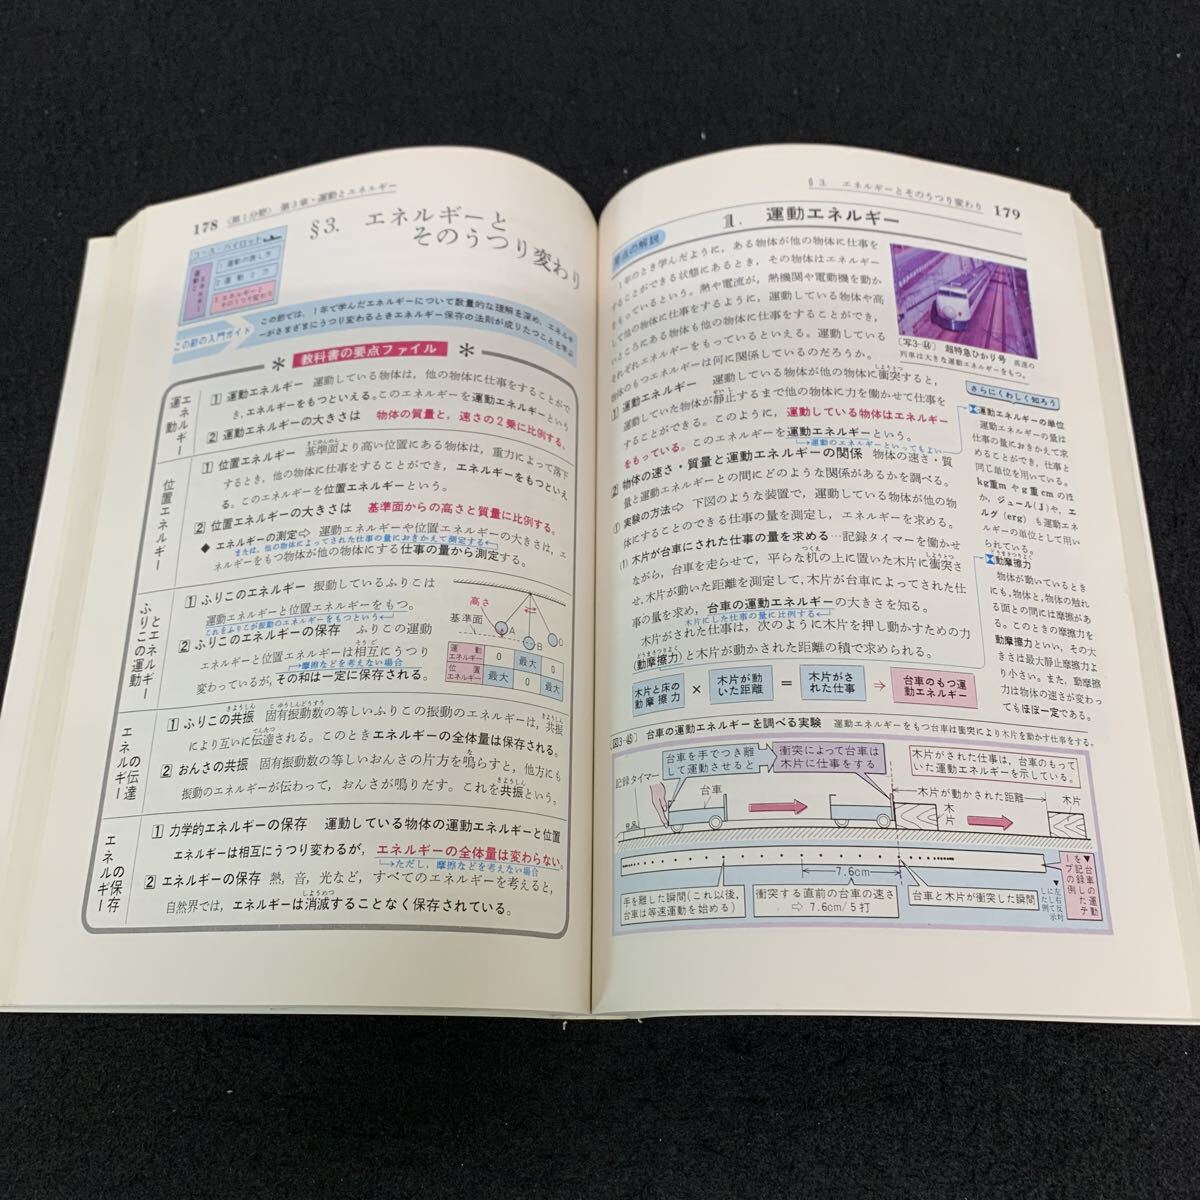 178 〈第1分野〉 第3章・運動とエネルギー
§3. エネルギーと
そのうつり変わり
コース・パイロット
運動とエネルギー
1 運動の表し方
2 運動と力
3 エネルギーと
そのうつり変わり
この節の入門ガイド
この節では，1年で学んだエネルギーについて数量的な理解を深め，エネルギ
ーがさまざまにうつり変わるときエネルギー保存の法則が成りたつことを学ぶ
＊ 教科書の要点ファイル ＊
運動エネルギー
1 運動エネルギー 運動している物体は，他の物体に仕事をすることがで
き，エネルギーをもつといえる。このエネルギーを運動エネルギーという
2 運動エネルギーの大きさは 物体の質量と，速さの2乗に比例する。
位置エネルギー
1 位置エネルギー 基準面より高い位置にある物体は，重力によって落下
する時，他の物体に仕事をすることができ，エネルギーをもつといえ
る。このエネルギーを位置エネルギーという。
2 位置エネルギーの大きさは 基準面からの高さと質量に比例する。
◆ エネルギーの測定⇨ 運動エネルギーや位置エネルギーの大きさは，エ
または，他の物体によってされた仕事の量におきかえて測定する
ネルギーをもつ物体が他の物体にする仕事の量から測定する。
ふりこの運動とエネルギー
1 ふりこのエネルギー 振動しているふりこは
運動エネルギーと位置エネルギーをもつ。
これをふりこが振動のエネルギーをもつという
2 ふりこのエネルギーの保存 ふりこの運動
エネルギーと位置エネルギーは相互にうつり
摩擦などを考えない場合
変わっているが，その和は一定に保存される。
高さ
基準面
A
B
C
運動エネルギー 0 最大 0
位置エネルギー 最大 0 最大
エネルギーの伝達
1 ふりこの共振 固有振動数の等しいふりこの振動のエネルギーは，共振
により互いに伝達される。このときエネルギーの全体量は保存される。
2 おんさの共振 固有振動数の等しいおんさの片方を鳴らすと，他方にも
振動のエネルギーが伝わって，おんさが鳴りだす。これを共振という。
エネルギーの保存
1 力学的エネルギーの保存 運動している物体の運動エネルギーと位置
エネルギーは相互にうつり変わるが，エネルギーの全体量は変わらない。
ただし，摩擦などを考えない場合
2 エネルギーの保存 熱，音，光など，すべてのエネルギーを考えると，
自然界では，エネルギーは消滅することなく保存されている。
§3. エネルギーとそのうつり変わり 179
1. 運動エネルギー
要点の解説
1年のとき学んだように，ある物体が他の物体に仕事を
することができる状態にあるとき，その物体はエネルギー
をもっているという。熱や電流が，熱機関や電動機を動か
して他の物体に仕事をするように，運動している物体や高
いところにある物体も他の物体に仕事をすることができ，
それぞれエネルギーをもっているといえる。運動している
物体のもつエネルギーは何に関係しているのだろうか。
〔写3-㊹〕 超特急ひかり号 高速の
列車は大きな運動エネルギーをもつ。
1 運動エネルギー 運動している物体が他の物体に衝突すると，
運動していた物体が静止するまで他の物体に力を働かせて仕事を
することができる。このように，運動している物体はエネルギー
をもっている。このエネルギーを運動エネルギーという。
運動のエネルギーといってもよい
2 物体の速さ・質量と運動エネルギーの関係 物体の速さ・質
量と運動エネルギーとの間にどのような関係があるかを調べる。
① 実験の方法⇨ 下図のような装置で，運動している物体が他の物
体にすることのできる仕事の量を測定し，エネルギーを求める。
(1) 木片が台車にされた仕事の量を求める…記録タイマーを働かせ
ながら，台車を走らせて，平らな机の上に置いた木片に衝突さ
せ，木片が動いた距離を測定して，木片が台車によってされた仕
事の量を求め，台車の運動エネルギーの大きさを知る。
木片にした仕事の量に比例する
木片がされた仕事は，次のように木片を押し動かすための力
（動摩擦力）と木片が動かされた距離の積で求められる。
木片と床の動摩擦力 × 木片が動いた距離 = 木片がされた仕事 → 台車のもつ運動エネルギー
さらにくわしく知ろう
運動エネルギーの単位
運動エネルギーの量は
仕事の量におきかえて求
めることができ，仕事と
同じ単位を用いている。
kg重m や g重cm のほ
か，ジュール(J)や，エ
ルグ (erg) も運動エネ
ルギーの単位として用い
られている。
動摩擦力
物体が動いているとき
にも，物体と，物体の触れ
る面との間には摩擦があ
る。このときの摩擦力を
動摩擦力といい，その大
きさは最大静止摩擦力よ
り小さい。また，動摩擦
力は物体の速さが変わっ
てもほぼ一定である。
〔図3-㊺〕 台車の運動エネルギーを調べる実験 運動エネルギーをもつ台車は衝突により木片を動かす仕事をする。
台車を手でつき離
して運動させると
衝突によって台車は
木片に仕事をする
木片がされた仕事は，台車のもって
いた運動エネルギーを示している。
記録タイマー
台車
木片が動かされた距離
木片
木片
7.6cm
手を離した瞬間（これ以後，
台車は等速運動を始める）
衝突する直前の台車の速さ
⇨ 7.6cm/5打
台車と木片が衝突した瞬間
▼台車の運動を記録したテープの例
▼左右反対にして示した例